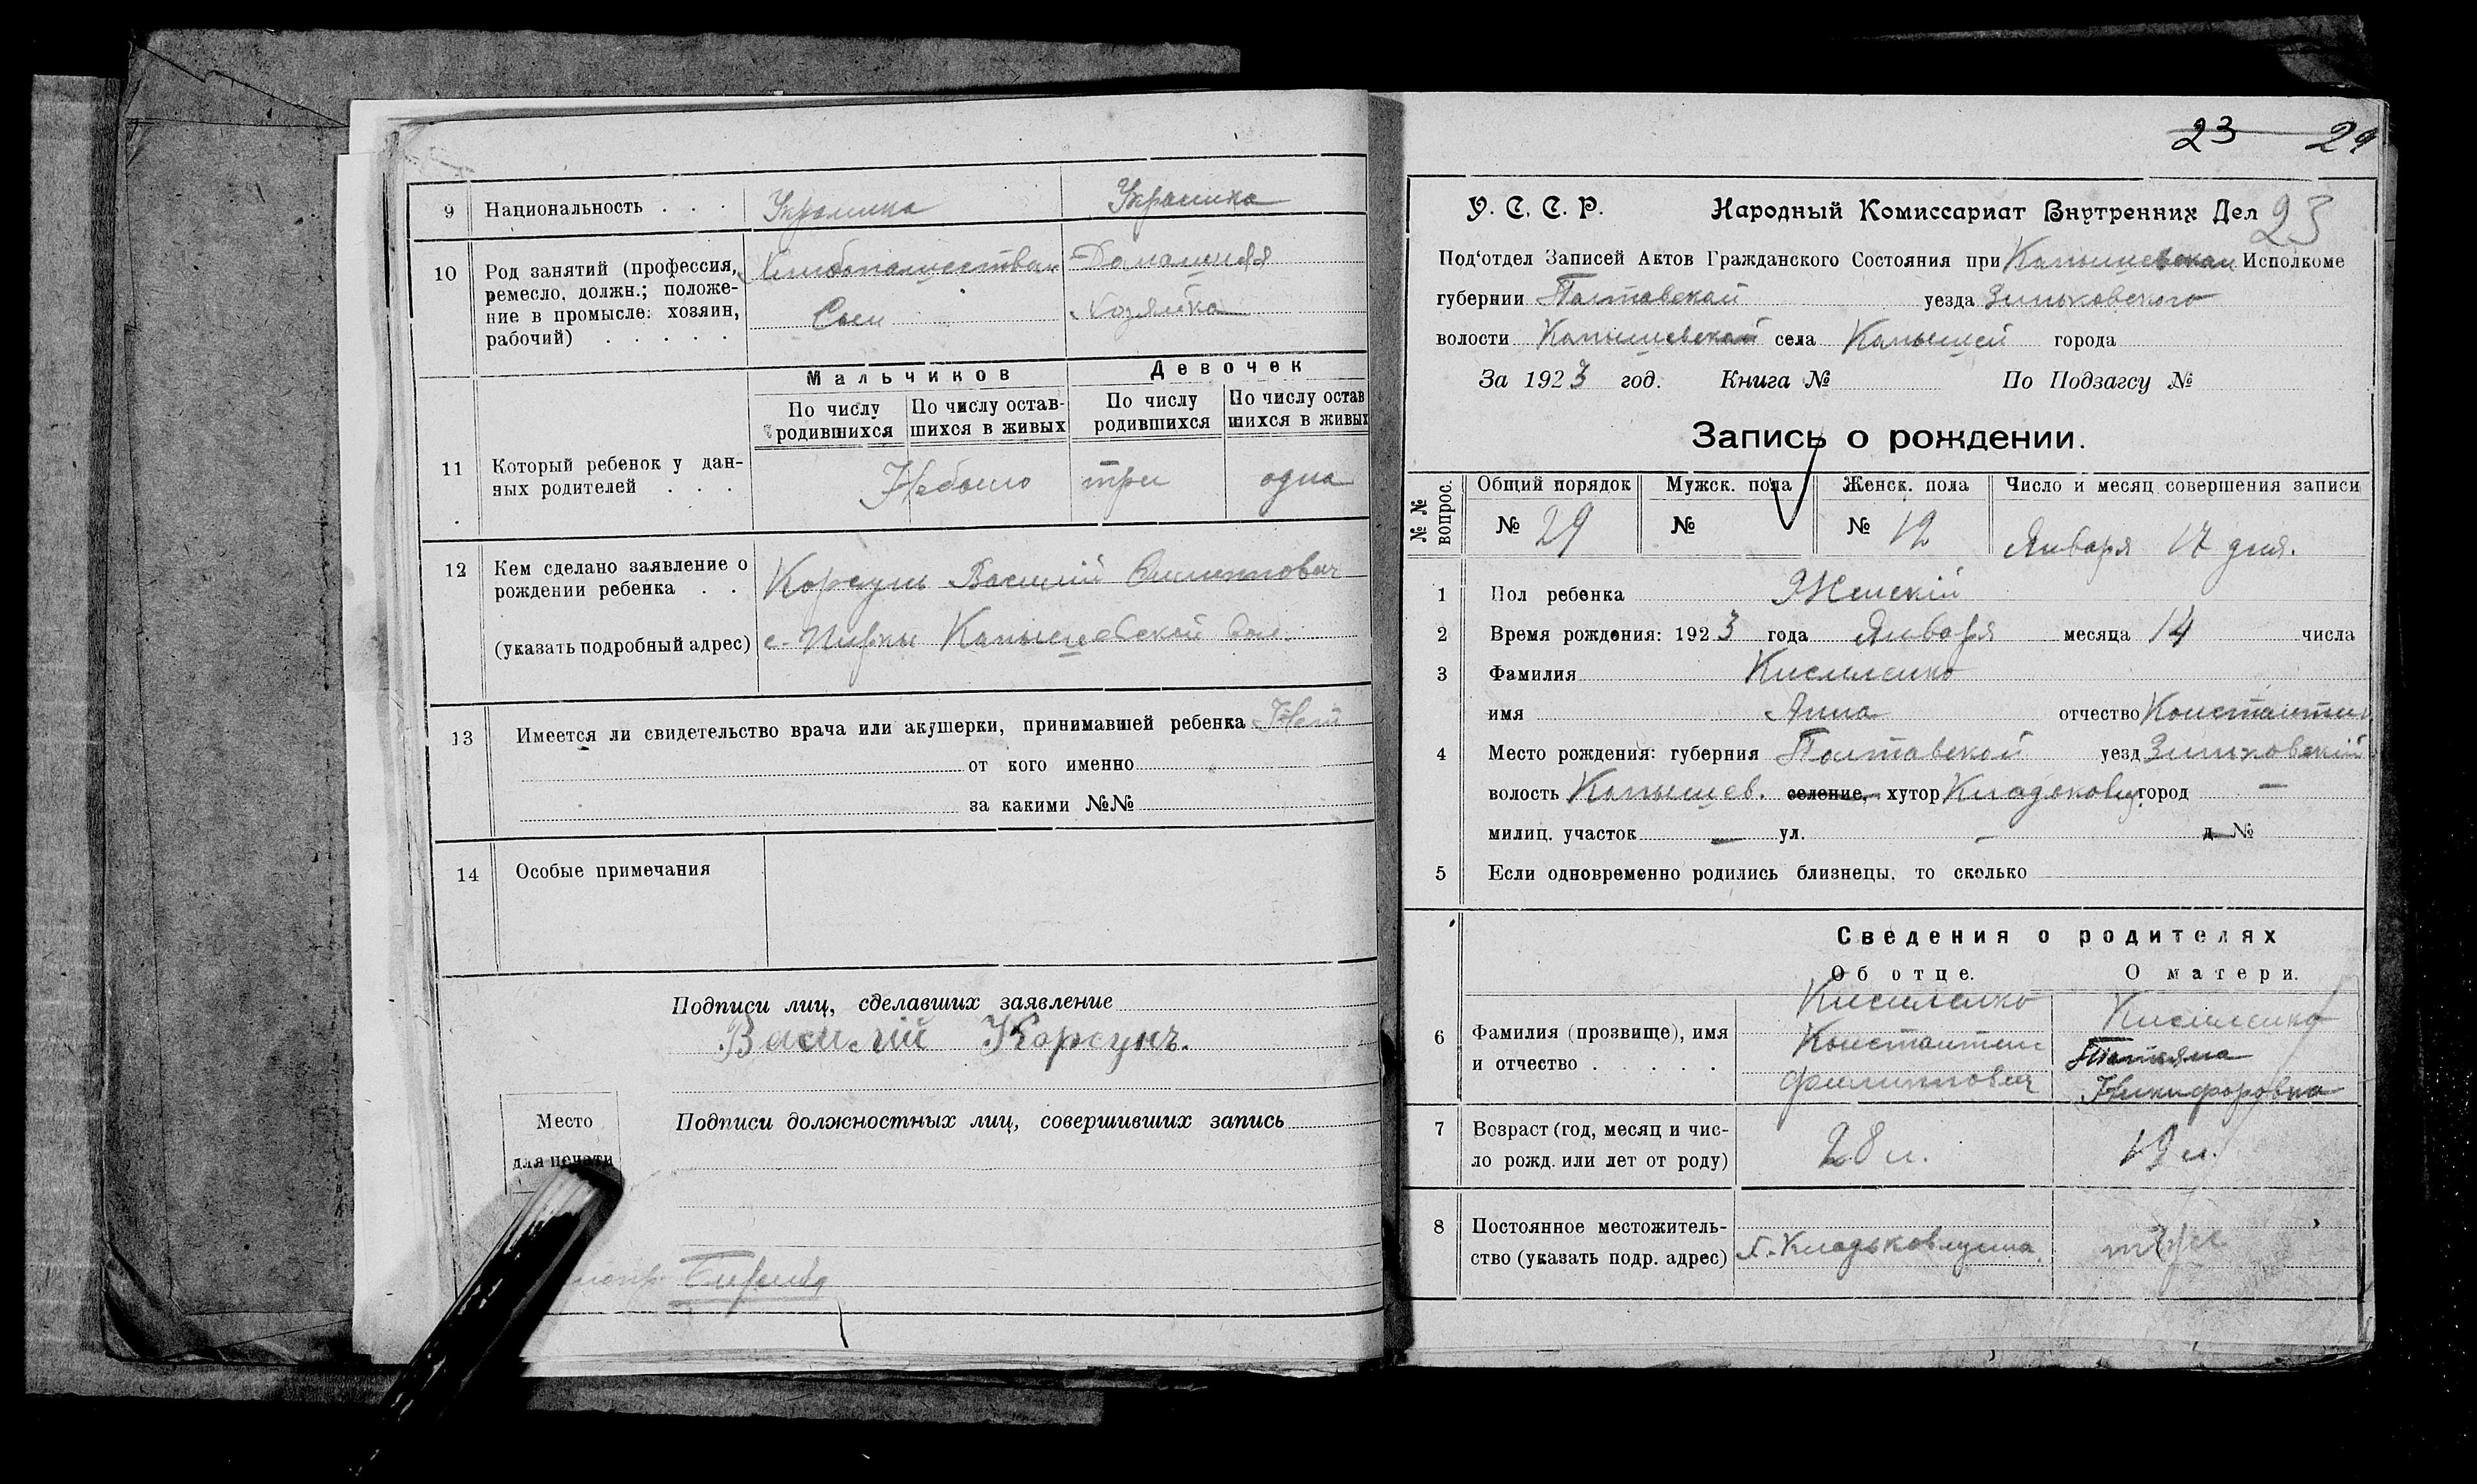 9 Национальность . . . Украинка Украинка
10 Род занятий (профессия, ремесло, должн.; положение в промысле: хозяин, рабочий) . . . . .
Сын
Домашняя
Хозяйка
Мальчиков Девочек
По числу родившихся По числу оставшихся в живых По числу родившихся По числу остав шихся в живых
11 Который ребенок у данных родителей . . . Небыло три одна
12 Кем сделано заявление о рождении ребенка . . Корсунь Василий
(указать подробный адрес) с. Пирки
13 Имеется ли свидетельство врача или акушерки, принимавшей ребенка Нет
от кого именно
за какими №№
14 Особые примечания
Подписи лиц, сделавших заявление
Василий Корсунъ.
Место
для печати
Подписи должностных лиц, совершивших запись
23 29
У. С. С. Р. Народный Комиссариат Внутренних Дел 23
Под‘отдел Записей Актов Гражданского Состояния при Исполкоме
губернии Полтавской уезда Зиньковского
волости села города
За 1923 год. Книга № По Подзагсу №
Запись о рождении.
№ № вопрос. Общий порядок Мужск. пола Женск. пола Число и месяц совершения записи
№ 29 № № 12 Января 17 дня.
1 Пол ребенка Женскій
2 Время рождения: 1923 года Января месяца 14 числа
3 Фамилия Кисиленко
имя Анна отчество
4 Место рождения: губерния Полтавской уезд Зиньковскій
волость селение, хутор город —
милиц. участок — ул. — д. №
5 Если одновременно родились близнецы, то сколько
Сведения о родителях
Об отце. О матери.
6 Фамилия (прозвище), имя и отчество . . . . .
Кисиленко
Константин
Филиппович
Кисиленко
Татьяна
Никифоровна
7 Возраст (год, месяц и число рожд. или лет от роду) 28 л. 19 л.
8 Постоянное местожительство (указать подр. адрес) тоже